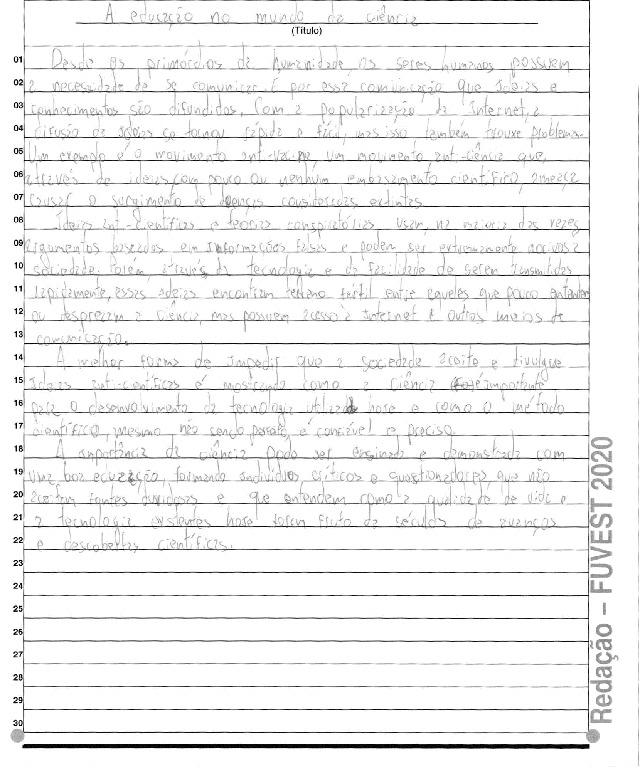 A educação no mundo da ciência
(Título)
01 Desde os primórdios da humanidade os seres humanos possuem
02 a necessidade de se comunicar, é por essa comunicação que ideias e
03 conhecimentos são difundidos. Com a popularização da Internet, a
04 difusão de ideias se tornou rápida e fácil, mas isso também trouxe problemas.
05 Um exemplo é o movimento anti-vacina, um movimento anti-ciência que,
06 através de ideias com pouco ou nenhum embasamento científico, ameaça
07 causar o surgimento de doenças consideradas extintas.
08 Ideias anti-científicas e teorias conspiratórias usam, na maioria das vezes
09 argumentos baseados em informações falsas e podem ser extremamente nocivos a
10 sociedade. Porém, através da tecnologia e da facilidade de serem transmitidas
11 rapidamente, essas ideias encontram terreno fértil entre aqueles que pouco entendem
12 ou desprezam a ciência, mas possuem acesso a Internet e outros meios de
13 comunicação.
14 A melhor forma de impedir que a sociedade aceite e divulgue
15 ideias anti-científicas é mostrando como a ciência é importante
16 para o desenvolvimento da tecnologia utilizada hoje e como o método
17 científico, mesmo não sendo perfeito, é confiável e preciso.
18 A importância da ciência pode ser ensinada e demonstrada com
19 uma boa educação, formando indivíduos críticos e questionadores, que não
20 aceitem fontes duvidosas e que entendem como a qualidade de vida e
21 a tecnologia existentes hoje foram fruto de séculos de avanços
22 e descobertas científicas.
23
24
25
26
27
28
29
30
Redação – FUVEST 2020